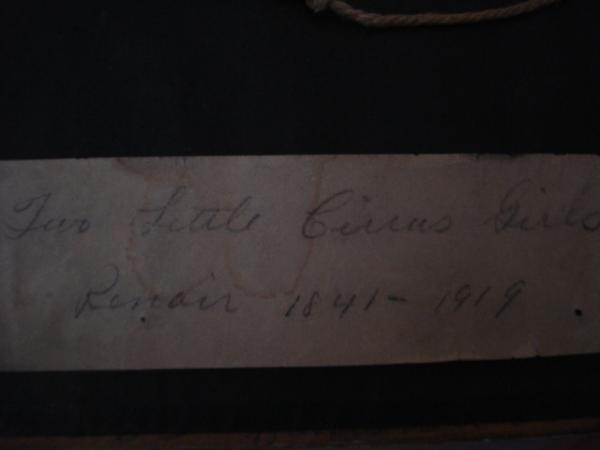 Two Little Circus Girls
Renoir 1841-1919